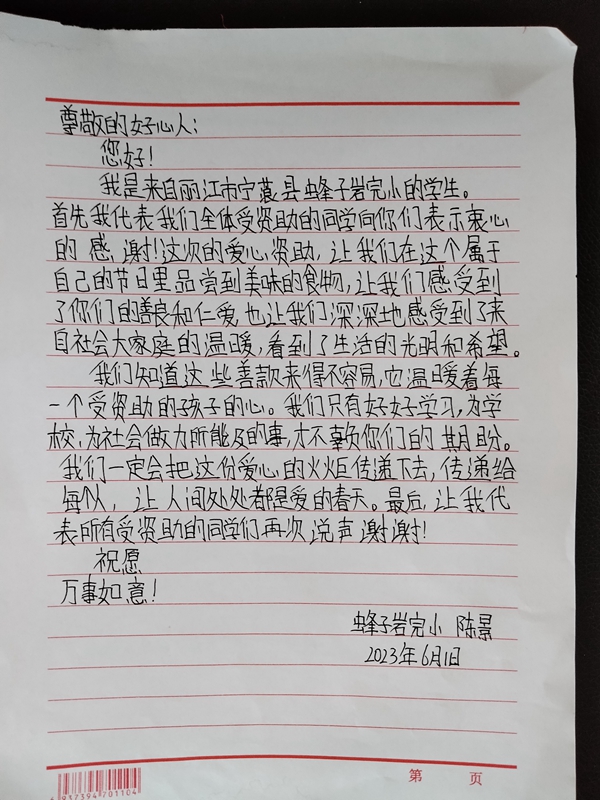 尊敬的好心人：
您好！
我是来自丽江市宁蒗县蜂子岩完小的学生。
首先我代表我们全体受资助的同学向你们表示衷心
的感谢！这次的爱心资助，让我们在这个属于
自己的节日里品尝到美味的食物，让我们感受到
了你们的善良和仁爱，也让我们深深地感受到了来
自社会大家庭的温暖，看到了生活的光明和希望。
我们知道这些善款来得不容易，它温暖着每
一个受资助的孩子的心。我们只有好好学习，为学
校，为社会做力所能及的事，才不辜负你们的期盼。
我们一定会把这份爱心的火炬传递下去，传递给
每个人，让人间处处都是爱的春天。最后，让我代
表所有受资助的同学们再次说声谢谢！
祝愿
万事如意！
蜂子岩完小 陈景
2023年6月1日
6937394701104
第 页